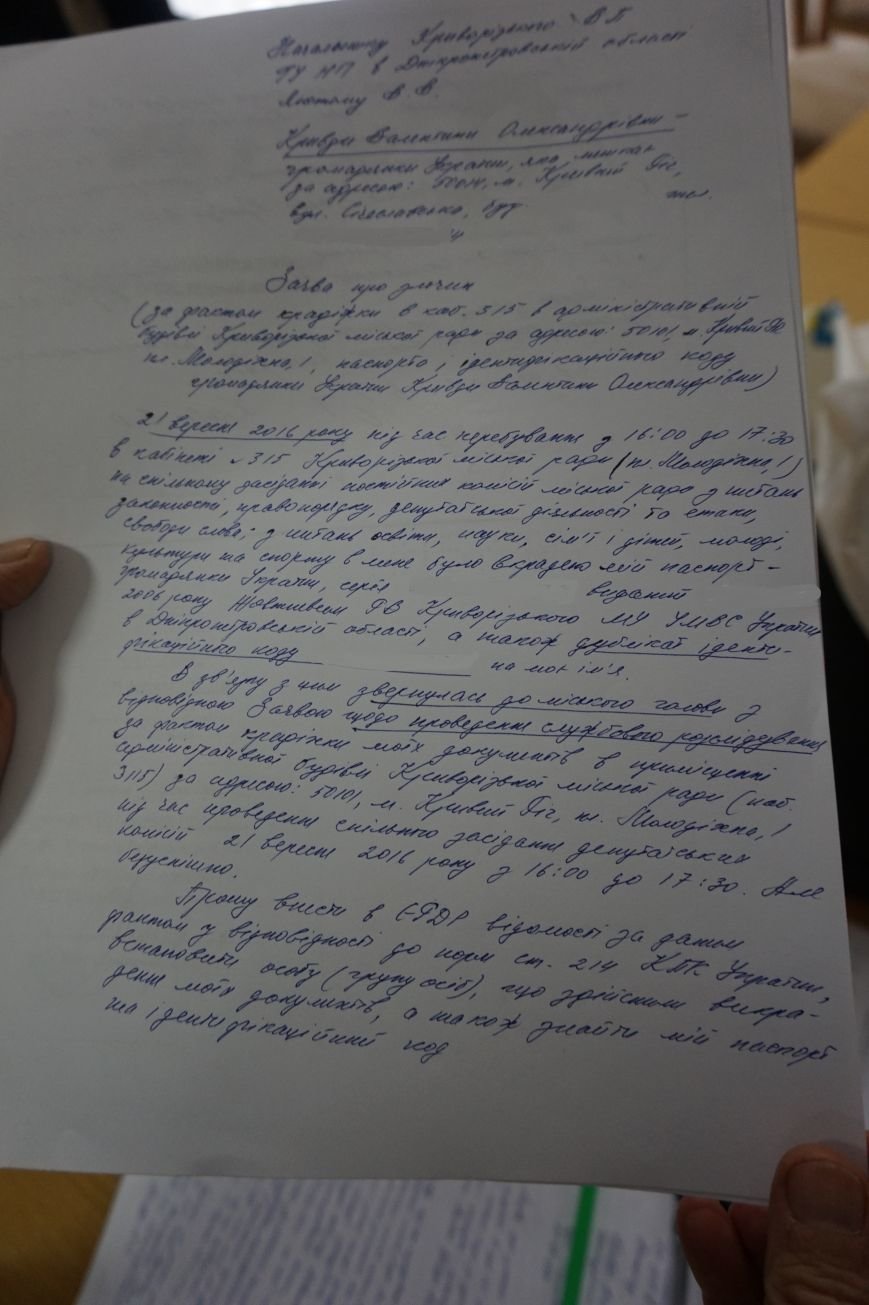 Начальнику Криворізького ВП
ГУ НП в Дніпропетровській області
Лютому В. В.
Кривди Валентини Олександрівни –
громадянки України, яка мешкає
за адресою: 50014, м. Кривий Ріг,
вул. Січеславська, буд.
тел.
Заява про злочин
(за фактом крадіжки в каб. 315 в адміністративній
будівлі Криворізької міської ради за адресою: 50101, м. Кривий Ріг
пл. Молодіжна, 1, паспорта і ідентифікаційного коду
громадянки України Кривди Валентини Олександрівни)
21 вересня 2016 року під час перебування з 16:00 до 17:30
в кабінеті 315 Криворізької міської ради (пл. Молодіжна, 1)
на спільному засіданні постійних комісій міської ради з питань
законності, правопорядку, депутатської діяльності та етики,
свободи слова; з питань освіти, науки, сім'ї і дітей, молоді,
культури та спорту в мене було вкрадено мій паспорт –
громадянки України, серія виданий
2006 року Жовтневим РВ Криворізького МУ УМВС України
в Дніпропетровській області, а також дублікат іденти-
фікаційного коду на моє ім'я.
В зв'язку з цим звернулась до міського голови з
відповідною Заявою щодо проведення службового розслідування
за фактом крадіжки моїх документів в приміщенні
адміністративної будівлі Криворізької міської ради (каб.
315) за адресою: 50101, м. Кривий Ріг, пл. Молодіжна, 1
під час проведення спільного засідання депутатських
комісій 21 вересня 2016 року з 16:00 до 17:30. Але
безуспішно.
Прошу внести в ЄРДР відомості за даним
фактом у відповідності до норм ст. 214 КПК України,
встановити особу (групу осіб), що здійснили викра-
дення моїх документів, а також знайти мій паспорт
та ідентифікаційний код